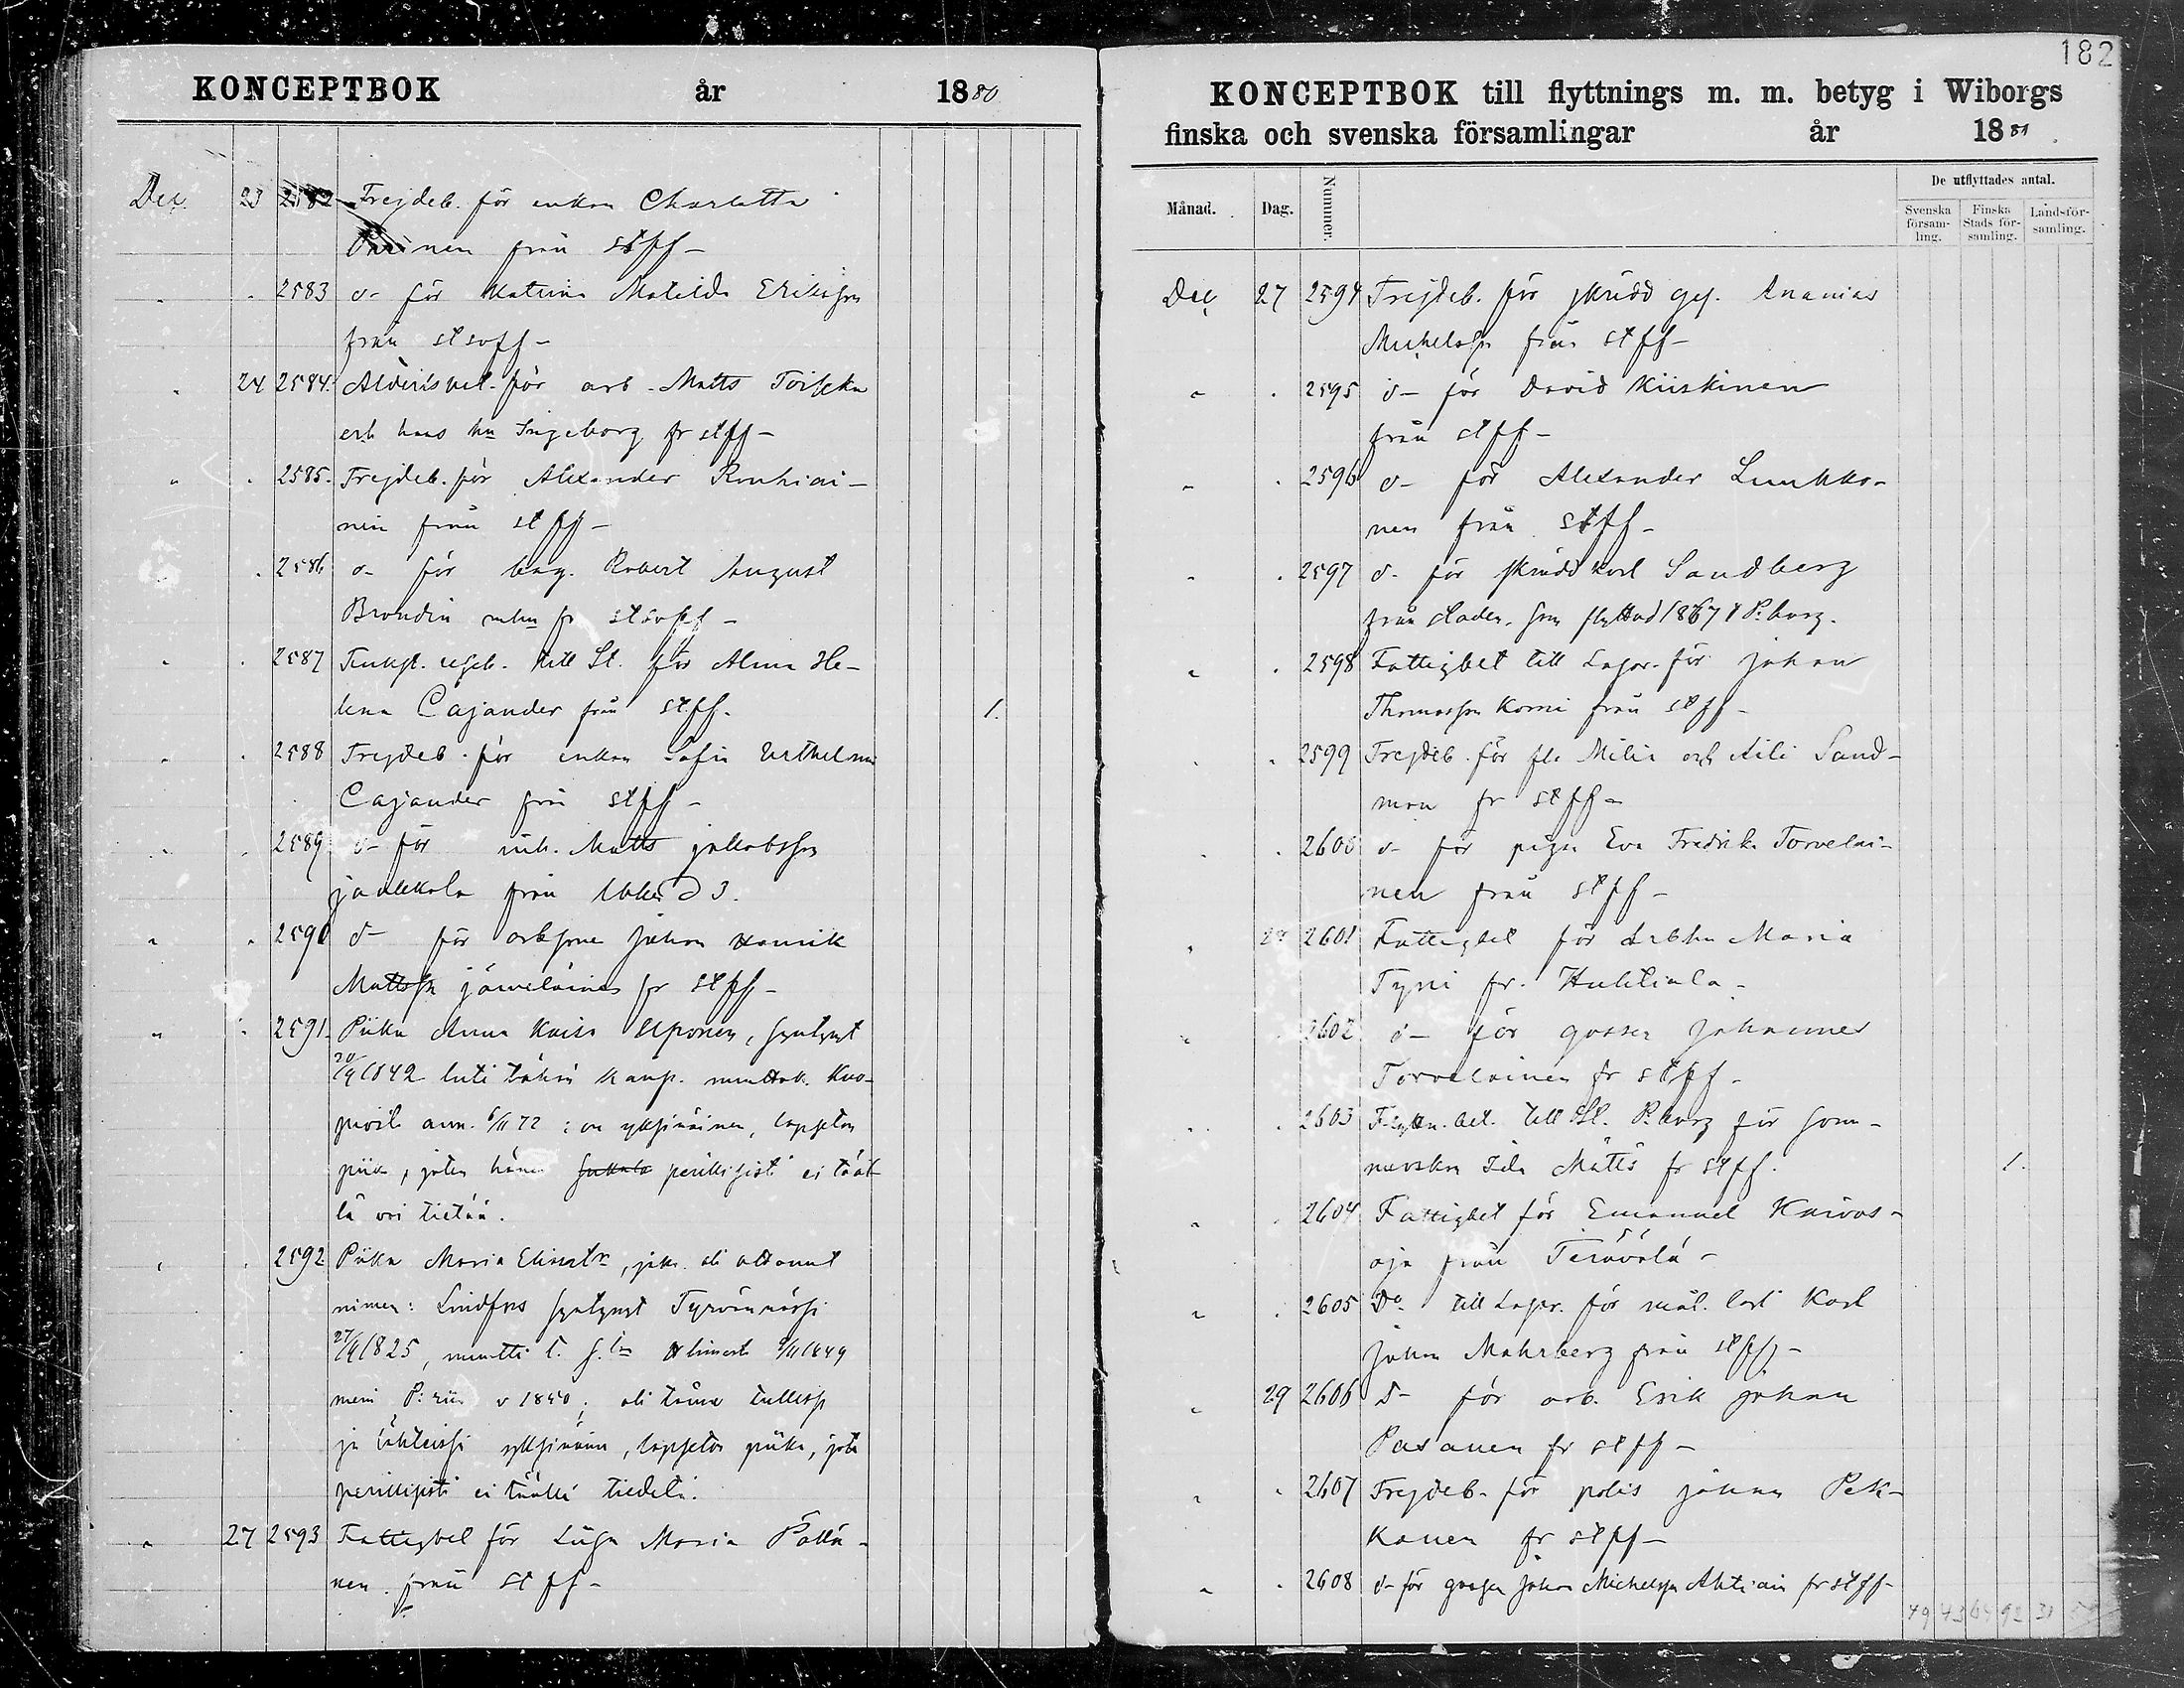 KONCEPTBOK år 1880
Dec. 23 2582 Frejdeb. för enkan Charlotta
Parinen från stff-
" " 2583 d- för Katrina Matilda Eriksson
från stsvff-
" 24 2584. för arb. Matts Toiska
och hans hu Ingeborg fr stff-
" " 2585. Frejdeb. för Alexander Ronkiai-
nen från stff-
" " 2586 d- för bag. Robert August
Brondin fr stsvff-
" " 2587 till St. för Alma He-
lena Cajander från stff. 1.
" " 2588 Frejdeb. för enkan Sofia Vilhelmina
Cajander från stff-
" " 2589 d- för inh. Matts Jakobsson
Jaakkola från 3.
" " 2590 d- för arbsone Johan Henrik
Mattss Järveläinen fr stff-
" " 2591. Piika Anna Kaisa Uponen, syntynyt
20/9 1842 tuli tähän kaup. muuttok. Kuo-
piosta ann. 6/11 72 : on yksinäinen, lapseton
piika, joten hänen perillisistä ei tääl-
lä voi tietää.
" " 2592 Piika Maria Elisabet, joka oli ottanut
nimen: Lindfors syntynyt Tyrvännössä
27/4 1825, muutti 9/11 1849
meni P:riin v 1850; oli tänne tullessa
ja lähteissä yksinäinen, lapseton piika, jota
perillisistä ei täällä tiedetä.
" 27 2593 Fattigbet för Maria Pöllä-
nen från stff-
182
KONCEPTBOK till flyttnings m. m. betyg i Wiborgs
finska och svenska församlingar år 1881.
Månad. Dag. Nummer. De utflyttades antal.
Svenska församling. Finska Stads församling. Landsförsamling.
Dec. 27 2594 Frejdeb. för skrädd ges. Ananias
Michelss från stff-
" " 2595 d- för David Kiiskinen
från stff-
" " 2596 d- för Alexander Luukko-
nen från stff-
" " 2597 d- för skrädd Karl Sandberg
från staden, som flyttad 1867 t P:burg.
" " 2598 Fattigbet till Lagar. för Johan
Thomasson Komi från stff-
" " 2599 Frejdeb. för fr. Milia och Aili Sand-
man fr stff-
" " 2600 d- för pigan Eva Fredrika Torvelai-
nen från stff-
" 28 2601 Fattigbet för arbhu Maria
Tyni fr. Huhtiala-
" " 2602 d- för gossen Johannes
Torvelainen fr stff-
" " 2603 Flyttn. bet. till St. P:burg för söm-
merskan Ida Mätts fr stff. 1.
" " 2604 Fattigbet för Emanuel Kaivos-
oja från Terävälä-
" " 2605 Do till Lagar. för mål. lärl Karl
Johan Mahrberg från stff-
" 29 2606 d- för arb. Erik Johan
Pasanen fr stff-
" " 2607 Frejdeb. för polis Johan Pek-
kanen fr stff-
" " 2608 d- för gossen Johan Michelss Ahtiain fr stff-
49 43 64 92 31